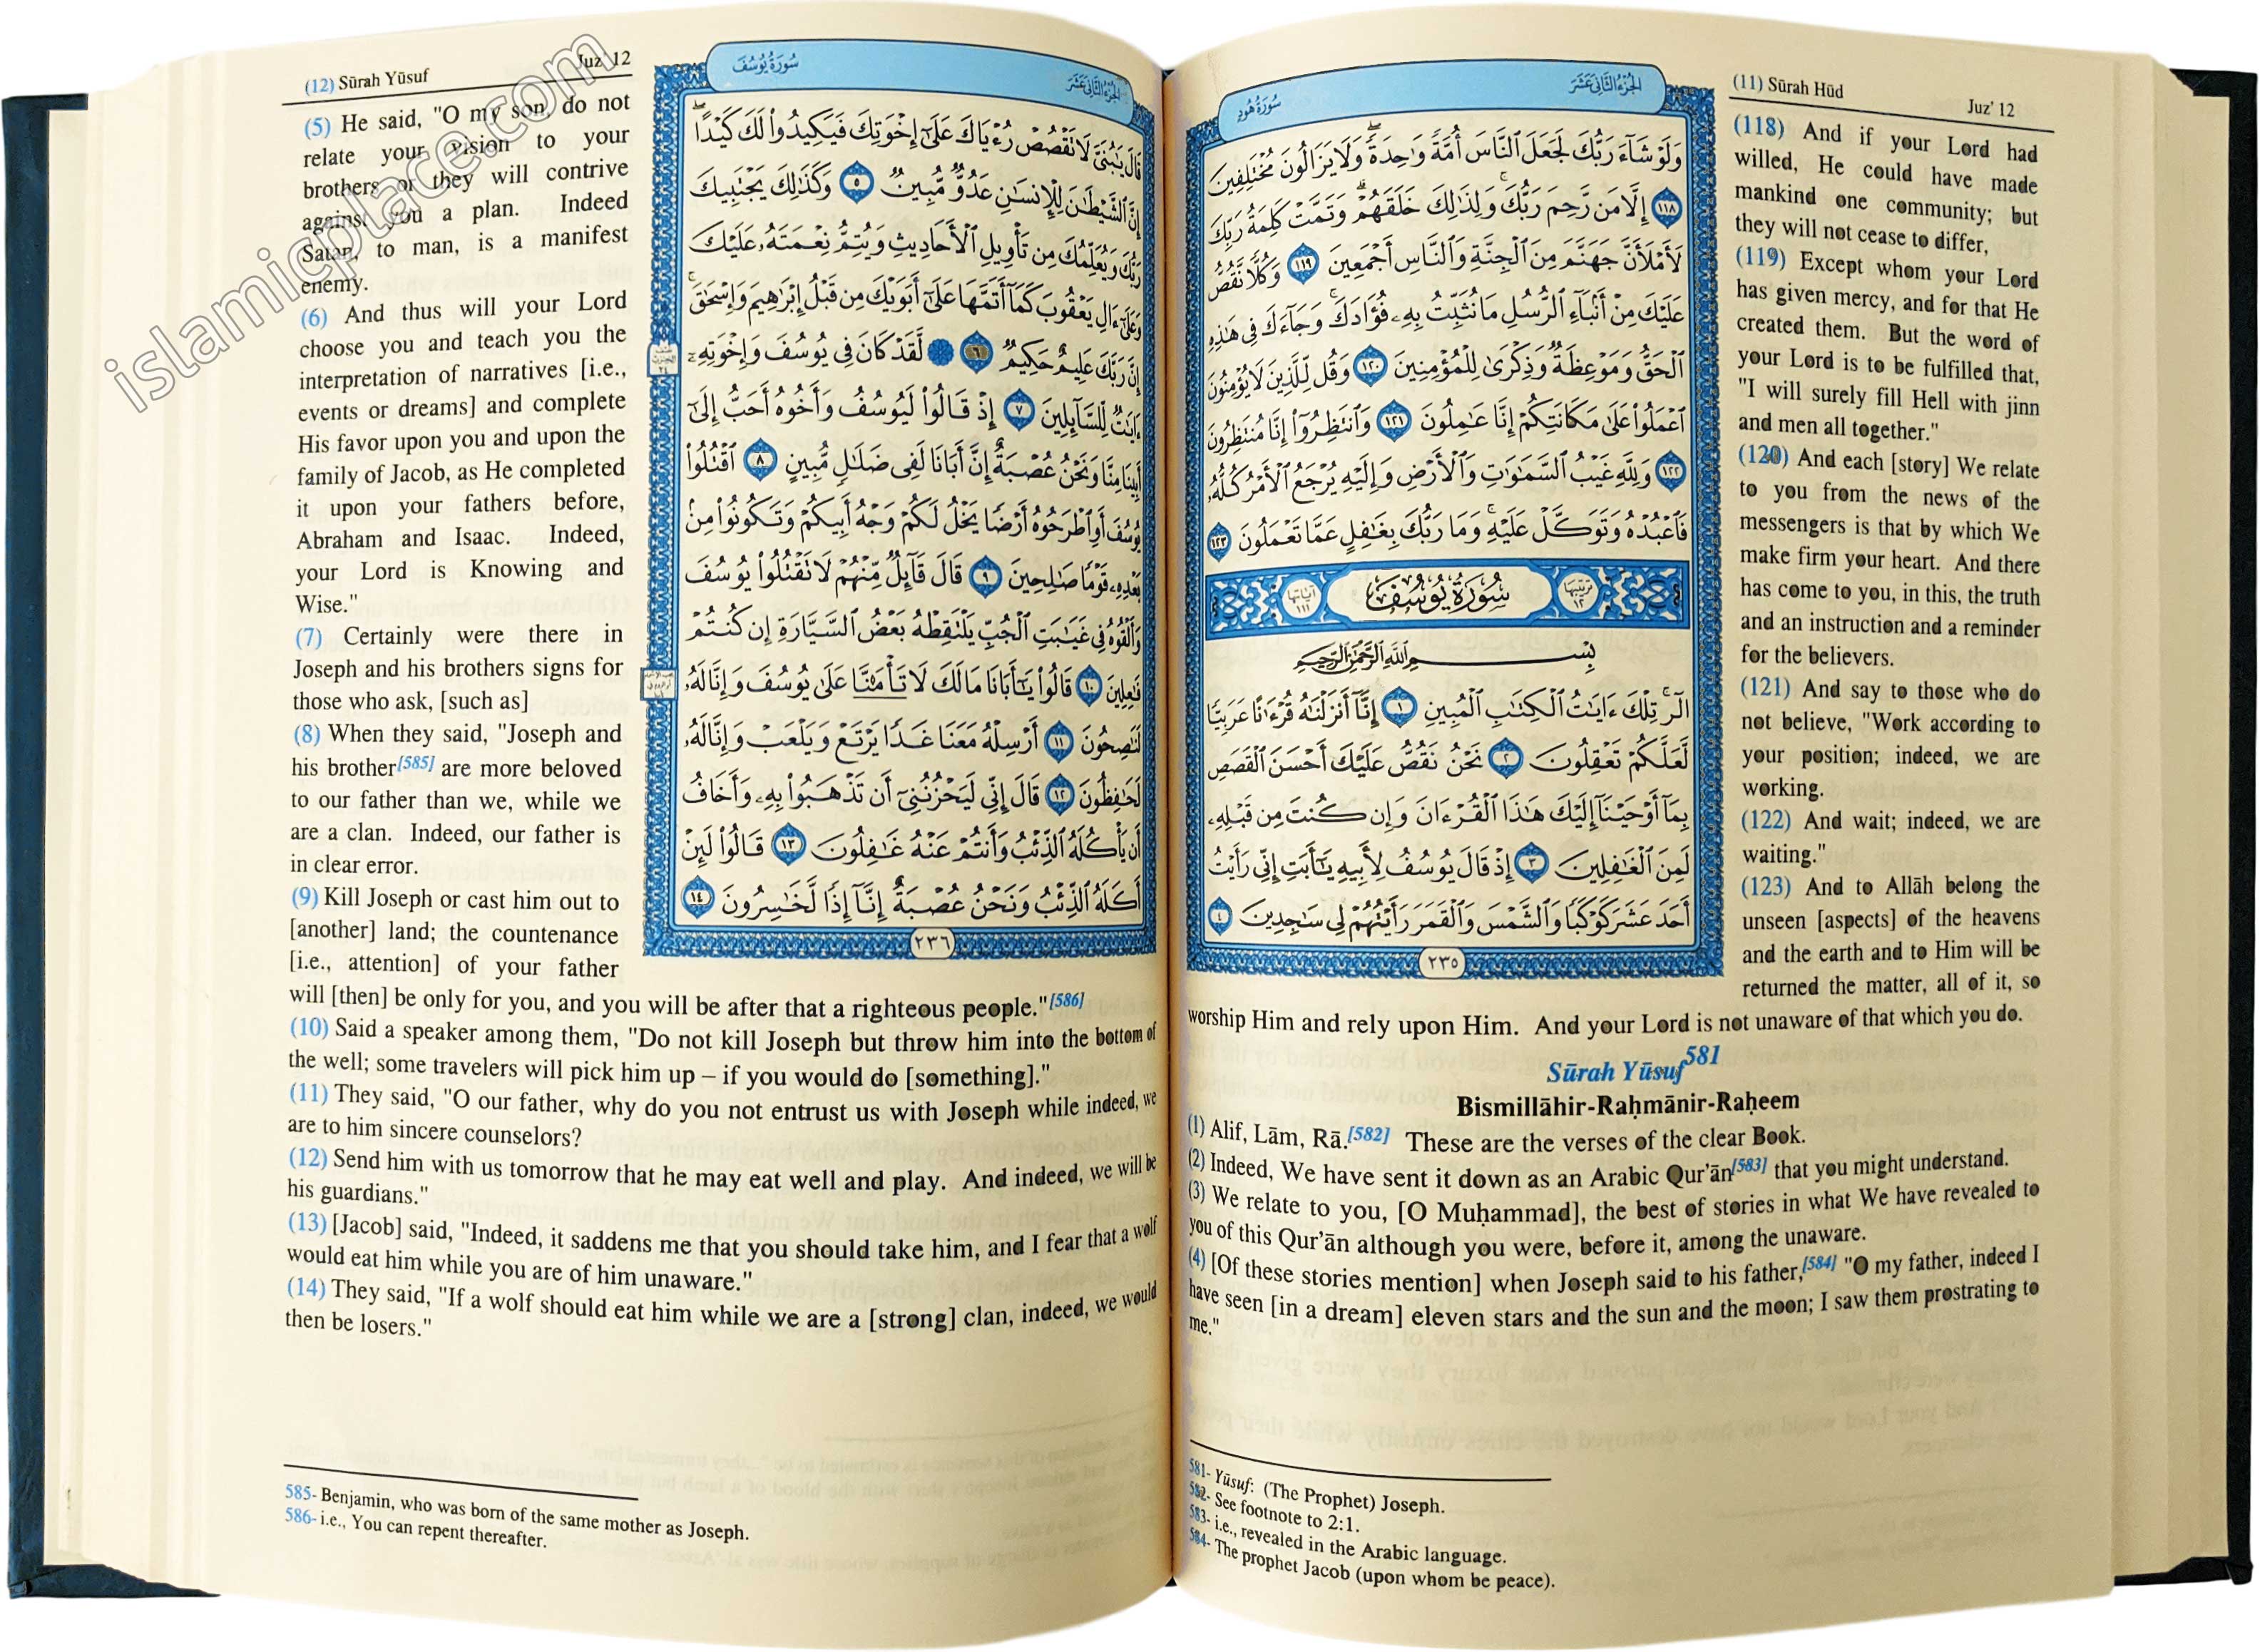 (11) Sūrah Hūd
Juz' 12
سُورَةُ هُودٍ
الجُزْءُ الثَّانِي عَشَرَ
وَلَوْ شَآءَ رَبُّكَ لَجَعَلَ ٱلنَّاسَ أُمَّةً وَٰحِدَةً ۖ وَلَا يَزَالُونَ مُخْتَلِفِينَ
١١٨ إِلَّا مَن رَّحِمَ رَبُّكَ ۚ وَلِذَٰلِكَ خَلَقَهُمْ ۗ وَتَمَّتْ كَلِمَةُ رَبِّكَ
لَأَمْلَأَنَّ جَهَنَّمَ مِنَ ٱلْجِنَّةِ وَٱلنَّاسِ أَجْمَعِينَ ١١٩ وَكُلًّا نَّقُصُّ
عَلَيْكَ مِنْ أَنۢبَآءِ ٱلرُّسُلِ مَا نُثَبِّتُ بِهِۦ فُؤَادَكَ ۚ وَجَآءَكَ فِى هَٰذِهِ
ٱلْحَقُّ وَمَوْعِظَةٌ وَذِكْرَىٰ لِلْمُؤْمِنِينَ ١٢٠ وَقُل لِّلَّذِينَ لَا يُؤْمِنُونَ
ٱعْمَلُوا۟ عَلَىٰ مَكَانَتِكُمْ إِنَّا عَٰمِلُونَ ١٢١ وَٱنتَظِرُوٓا۟ إِنَّا مُنتَظِرُونَ
١٢٢ وَلِلَّهِ غَيْبُ ٱلسَّمَٰوَٰتِ وَٱلْأَرْضِ وَإِلَيْهِ يُرْجَعُ ٱلْأَمْرُ كُلُّهُۥ
فَٱعْبُدْهُ وَتَوَكَّلْ عَلَيْهِ ۚ وَمَا رَبُّكَ بِغَٰفِلٍ عَمَّا تَعْمَلُونَ ١٢٣
ترتيبها ١٢ سُورَةُ يُوسُفَ آياتها ١١١
بِسْمِ ٱللَّهِ ٱلرَّحْمَٰنِ ٱلرَّحِيمِ
الٓر ۚ تِلْكَ ءَايَٰتُ ٱلْكِتَٰبِ ٱلْمُبِينِ ١ إِنَّآ أَنزَلْنَٰهُ قُرْءَٰنًا عَرَبِيًّا
لَّعَلَّكُمْ تَعْقِلُونَ ٢ نَحْنُ نَقُصُّ عَلَيْكَ أَحْسَنَ ٱلْقَصَصِ
بِمَآ أَوْحَيْنَآ إِلَيْكَ هَٰذَا ٱلْقُرْءَانَ وَإِن كُنتَ مِن قَبْلِهِۦ
لَمِنَ ٱلْغَٰفِلِينَ ٣ إِذْ قَالَ يُوسُفُ لِأَبِيهِ يَٰٓأَبَتِ إِنِّى رَأَيْتُ
أَحَدَ عَشَرَ كَوْكَبًا وَٱلشَّمْسَ وَٱلْقَمَرَ رَأَيْتُهُمْ لِى سَٰجِدِينَ ٤
٢٣٥
(118) And if your Lord had
willed, He could have made
mankind one community; but
they will not cease to differ,
(119) Except whom your Lord
has given mercy, and for that He
created them. But the word of
your Lord is to be fulfilled that,
"I will surely fill Hell with jinn
and men all together."
(120) And each [story] We relate
to you from the news of the
messengers is that by which We
make firm your heart. And there
has come to you, in this, the truth
and an instruction and a reminder
for the believers.
(121) And say to those who do
not believe, "Work according to
your position; indeed, we are
working.
(122) And wait; indeed, we are
waiting."
(123) And to Allāh belong the
unseen [aspects] of the heavens
and the earth and to Him will be
returned the matter, all of it, so
worship Him and rely upon Him. And your Lord is not unaware of that which you do.
Sūrah Yūsuf581
Bismillāhir-Raḥmānir-Raḥeem
(1) Alif, Lām, Rā.[582] These are the verses of the clear Book.
(2) Indeed, We have sent it down as an Arabic Qur’ān[583] that you might understand.
(3) We relate to you, [O Muḥammad], the best of stories in what We have revealed to
you of this Qur’ān although you were, before it, among the unaware.
(4) [Of these stories mention] when Joseph said to his father,[584] "O my father, indeed I
have seen [in a dream] eleven stars and the sun and the moon; I saw them prostrating to
me."
581- Yūsuf: (The Prophet) Joseph.
582- See footnote to 2:1.
583- i.e., revealed in the Arabic language.
584- The prophet Jacob (upon whom be peace).
(12) Sūrah Yūsuf
Juz' 12
سُورَةُ يُوسُفَ
الجُزْءُ الثَّانِي عَشَرَ
قَالَ يَٰبُنَىَّ لَا تَقْصُصْ رُءْيَاكَ عَلَىٰٓ إِخْوَتِكَ فَيَكِيدُوا۟ لَكَ كَيْدًا ۖ
إِنَّ ٱلشَّيْطَٰنَ لِلْإِنسَٰنِ عَدُوٌّ مُّبِينٌ ٥ وَكَذَٰلِكَ يَجْتَبِيكَ
رَبُّكَ وَيُعَلِّمُكَ مِن تَأْوِيلِ ٱلْأَحَادِيثِ وَيُتِمُّ نِعْمَتَهُۥ عَلَيْكَ
وَعَلَىٰٓ ءَالِ يَعْقُوبَ كَمَآ أَتَمَّهَا عَلَىٰٓ أَبَوَيْكَ مِن قَبْلُ إِبْرَٰهِيمَ وَإِسْحَٰقَ ۚ
إِنَّ رَبَّكَ عَلِيمٌ حَكِيمٌ ٦ لَّقَدْ كَانَ فِى يُوسُفَ وَإِخْوَتِهِۦٓ
ءَايَٰتٌ لِّلسَّآئِلِينَ ٧ إِذْ قَالُوا۟ لَيُوسُفُ وَأَخُوهُ أَحَبُّ إِلَىٰٓ
أَبِينَا مِنَّا وَنَحْنُ عُصْبَةٌ إِنَّ أَبَانَا لَفِى ضَلَٰلٍ مُّبِينٍ ٨ ٱقْتُلُوا۟
يُوسُفَ أَوِ ٱطْرَحُوهُ أَرْضًا يَخْلُ لَكُمْ وَجْهُ أَبِيكُمْ وَتَكُونُوا۟ مِنۢ
بَعْدِهِۦ قَوْمًا صَٰلِحِينَ ٩ قَالَ قَآئِلٌ مِّنْهُمْ لَا تَقْتُلُوا۟ يُوسُفَ
وَأَلْقُوهُ فِى غَيَٰبَتِ ٱلْجُبِّ يَلْتَقِطْهُ بَعْضُ ٱلسَّيَّارَةِ إِن كُنتُمْ
فَٰعِلِينَ ١٠ قَالُوا۟ يَٰٓأَبَانَا مَالَكَ لَا تَأْمَ۫نَّا عَلَىٰ يُوسُفَ وَإِنَّا لَهُۥ
لَنَٰصِحُونَ ١١ أَرْسِلْهُ مَعَنَا غَدًا يَرْتَعْ وَيَلْعَبْ وَإِنَّا لَهُۥ
لَحَٰفِظُونَ ١٢ قَالَ إِنِّى لَيَحْزُنُنِىٓ أَن تَذْهَبُوا۟ بِهِۦ وَأَخَافُ
أَن يَأْكُلَهُ ٱلذِّئْبُ وَأَنتُمْ عَنْهُ غَٰفِلُونَ ١٣ قَالُوا۟ لَئِنْ
أَكَلَهُ ٱلذِّئْبُ وَنَحْنُ عُصْبَةٌ إِنَّآ إِذًا لَّخَٰسِرُونَ ١٤
٢٣٦
(5) He said, "O my son, do not
relate your vision to your
brothers or they will contrive
against you a plan. Indeed
Satan, to man, is a manifest
enemy.
(6) And thus will your Lord
choose you and teach you the
interpretation of narratives [i.e.,
events or dreams] and complete
His favor upon you and upon the
family of Jacob, as He completed
it upon your fathers before,
Abraham and Isaac. Indeed,
your Lord is Knowing and
Wise."
(7) Certainly were there in
Joseph and his brothers signs for
those who ask, [such as]
(8) When they said, "Joseph and
his brother[585] are more beloved
to our father than we, while we
are a clan. Indeed, our father is
in clear error.
(9) Kill Joseph or cast him out to
[another] land; the countenance
[i.e., attention] of your father
will [then] be only for you, and you will be after that a righteous people."[586]
(10) Said a speaker among them, "Do not kill Joseph but throw him into the bottom of
the well; some travelers will pick him up – if you would do [something]."
(11) They said, "O our father, why do you not entrust us with Joseph while indeed, we
are to him sincere counselors?
(12) Send him with us tomorrow that he may eat well and play. And indeed, we will be
his guardians."
(13) [Jacob] said, "Indeed, it saddens me that you should take him, and I fear that a wolf
would eat him while you are of him unaware."
(14) They said, "If a wolf should eat him while we are a [strong] clan, indeed, we would
then be losers."
585- Benjamin, who was born of the same mother as Joseph.
586- i.e., You can repent thereafter.
islamicplace.com